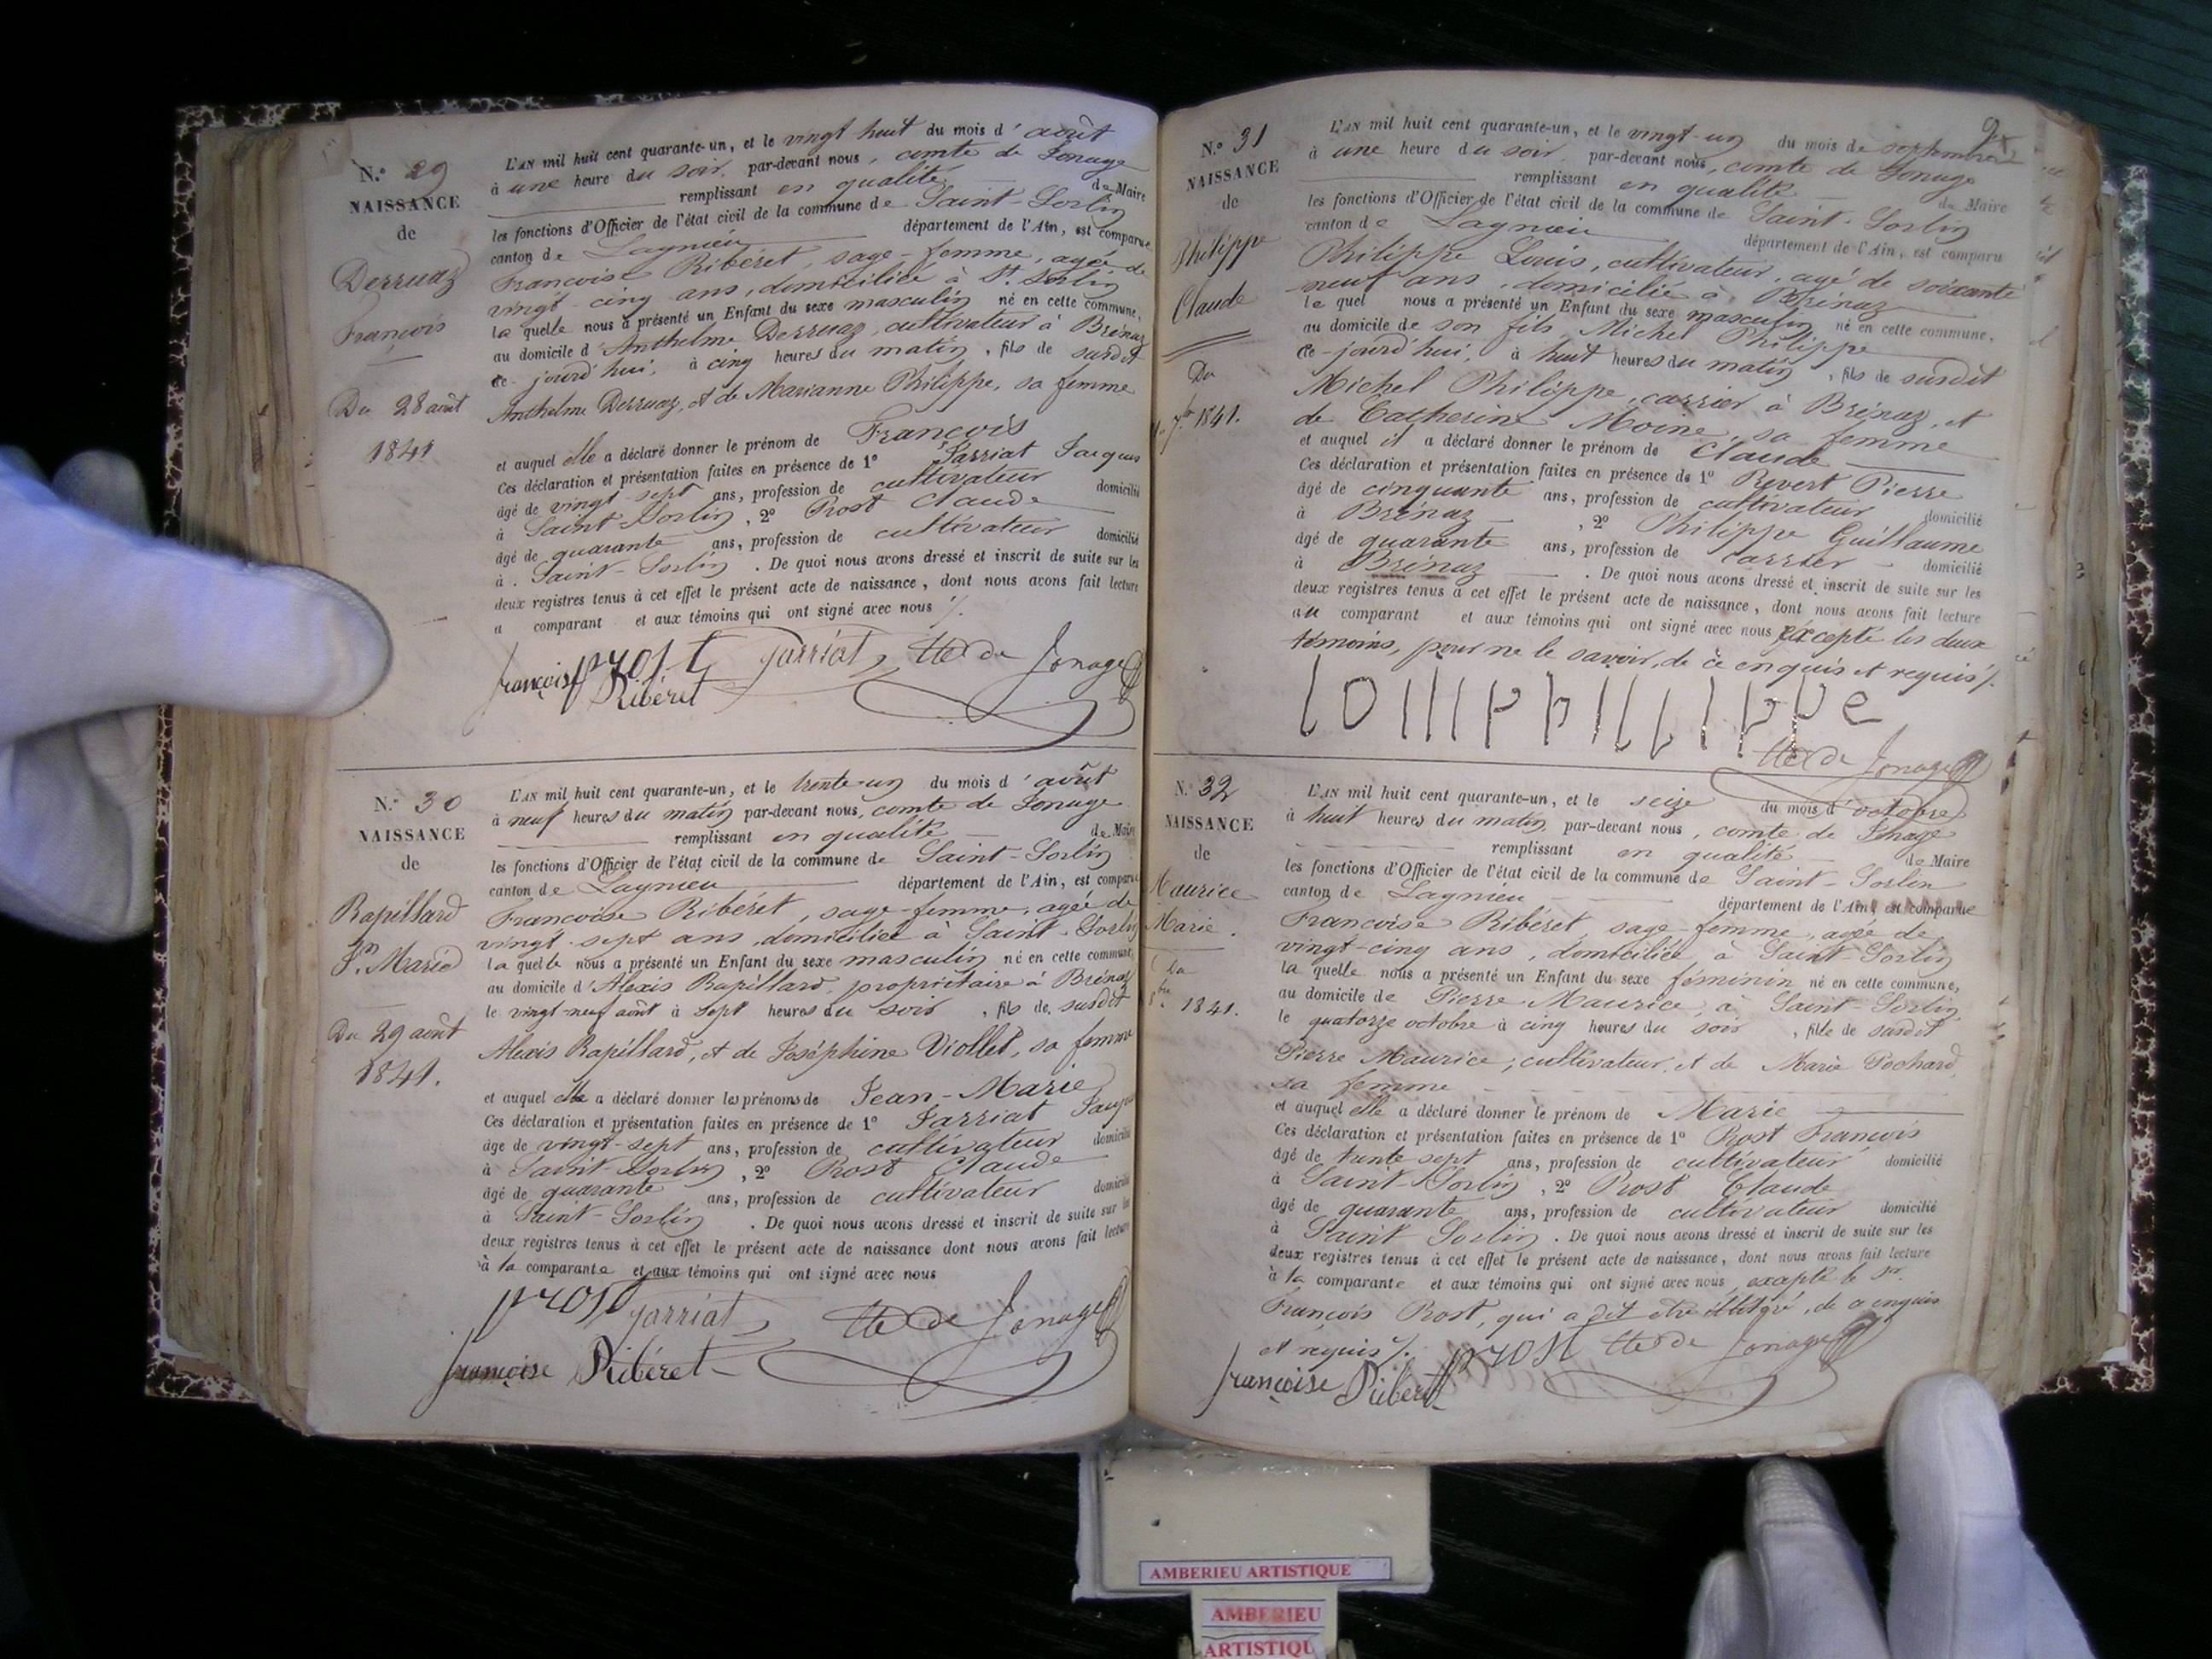 N.° 29
NAISSANCE
de
Derruaz
François
Du 28 août
1841
L'AN mil huit cent quarante-un, et le vingt huit du mois d' août
à une heure du soir, par-devant nous, comte de Jonage
remplissant en qualité de Maire
les fonctions d'Officier de l'état civil de la commune de Saint-Sorlin
canton de Lagnieu département de l'Ain, est comparue
Francoise Ribéret, sage-femme, agée de
vingt-cinq ans, domiciliée à St. Sorlin
la quelle nous a présenté un Enfant du sexe masculin né en cette commune,
au domicile d'Anthelme Derruaz, cultivateur à Brénaz
ce-jourd'hui, à cinq heures du matin, fils de susdit
Anthelme Derruaz, et de Marianne Philippe, sa femme
et auquel elle a déclaré donner le prénom de François
Ces déclaration et présentation faites en présence de 1° Jarriat Jacques
âgé de vingt-sept ans, profession de cultivateur domicilié
à Saint Sorlin, 2° Prost Claude
âgé de quarante ans, profession de cultivateur domicilié
à Saint-Sorlin. De quoi nous avons dressé et inscrit de suite sur les
deux registres tenus à cet effet le présent acte de naissance, dont nous avons fait lecture
a comparant et aux témoins qui ont signé avec nous /.
françoise prost jarriat Cte de Jonage
Ribéret
N.° 30
NAISSANCE
de
Rapillard
Jn. Marie
Du 29 août
1841.
L'AN mil huit cent quarante-un, et le trente-un du mois d' août
à neuf heures du matin par-devant nous, comte de Jonage
remplissant en qualité de Maire
les fonctions d'Officier de l'état civil de la commune de Saint-Sorlin
canton de Lagnieu département de l'Ain, est comparue
Francoise Ribéret, sage-femme, agée de
vingt-sept ans, domiciliée à Saint-Sorlin
la quelle nous a présenté un Enfant du sexe masculin né en cette commune,
au domicile d'Alexis Rapillard, propriétaire à Brénaz
le vingt-neuf août à sept heures du soir, fils de susdit
Alexis Rapillard, et de Joséphine Viollet, sa femme
et auquel elle a déclaré donner les prénoms de Jean-Marie
Ces déclaration et présentation faites en présence de 1° Jarriat Jacques
âgé de vingt-sept ans, profession de cultivateur domicilié
à Saint-Sorlin, 2° Prost Claude
âgé de quarante ans, profession de cultivateur domicilié
à Saint-Sorlin. De quoi nous avons dressé et inscrit de suite sur les
deux registres tenus à cet effet le présent acte de naissance dont nous avons fait lecture
à la comparante et aux témoins qui ont signé avec nous
prost jarriat Cte de Jonage
françoise Ribéret
N.° 31
NAISSANCE
de
Philippe
Claude
Du
1841.
L'AN mil huit cent quarante-un, et le vingt-un du mois de septembre
à une heure du soir, par-devant nous, comte de Jonage
remplissant en qualité de Maire
les fonctions d'Officier de l'état civil de la commune de Saint-Sorlin
canton de Lagnieu département de l'Ain, est comparu
Philippe Louis, cultivateur, agé de soixante
neuf ans, domicilié à Brénaz
le quel nous a présenté un Enfant du sexe masculin né en cette commune,
au domicile de son fils Michel Philippe
ce-jourd'hui, à huit heures du matin, fils de susdit
Michel Philippe, carrier à Brénaz, et
de Catherine Moine, sa femme
et auquel il a déclaré donner le prénom de Claude
Ces déclaration et présentation faites en présence de 1° Revert Pierre
âgé de cinquante ans, profession de cultivateur domicilié
à Brénaz, 2° Philippe Guillaume
âgé de quarante ans, profession de carrier domicilié
à Brénaz. De quoi nous avons dressé et inscrit de suite sur les
deux registres tenus à cet effet le présent acte de naissance, dont nous avons fait lecture
au comparant et aux témoins qui ont signé avec nous excepté les deux
témoins, pour ne le savoir, de ce enquis et requis /.
Cte de Jonage
N.° 32
NAISSANCE
de
Maurice
Marie.
Du
1841.
L'AN mil huit cent quarante-un, et le seize du mois d' octobre
à huit heures du matin, par-devant nous, comte de Jonage
remplissant en qualité de Maire
les fonctions d'Officier de l'état civil de la commune de Saint-Sorlin
canton de Lagnieu département de l'Ain, est comparue
Francoise Ribéret, sage-femme, agée de
vingt-cinq ans, domiciliée à Saint-Sorlin
la quelle nous a présenté un Enfant du sexe féminin né en cette commune,
au domicile de Pierre Maurice, à Saint-Sorlin,
le quatorze octobre à cinq heures du soir, fille de susdit
Pierre Maurice, cultivateur, et de Marie Pochard,
sa femme
et auquel elle a déclaré donner le prénom de Marie
Ces déclaration et présentation faites en présence de 1° Prost François
âgé de trente sept ans, profession de cultivateur domicilié
à Saint-Sorlin, 2° Prost Claude
âgé de quarante ans, profession de cultivateur domicilié
à Saint Sorlin. De quoi nous avons dressé et inscrit de suite sur les
deux registres tenus à cet effet le présent acte de naissance, dont nous avons fait lecture
à la comparante et aux témoins qui ont signé avec nous, excepté le Sr.
François Prost, qui a dit être illitéré, de ce enquis
et requis /. prost Cte de Jonage
françoise Ribéret
AMBERIEU ARTISTIQUE
AMBERIEU
ARTISTIQU